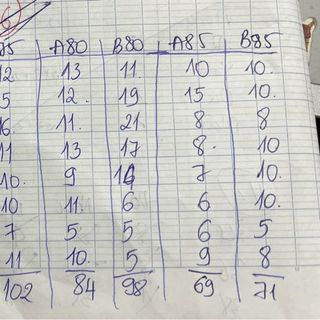 75 A80 B80 A85 B85
12 13 11. 10 10.
5 12. 19 15 10.
16 11. 21 8 8
11 13 17 8. 10
10. 9 14 7 10.
10 11. 6 6 10.
7 5 5 6 5
11 10. 5 9 8
102 84 98 69 71